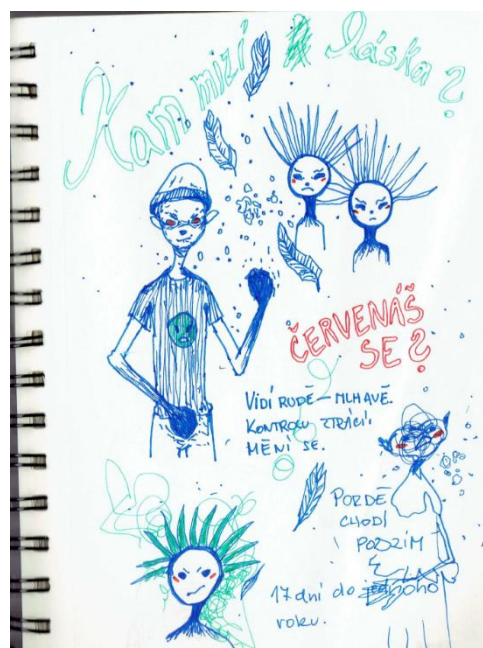 Kam mizí láska?
ČERVENÁŠ
SE?
VIDÍ RUDĚ – MLHAVĚ.
KONTROLU ZTRÁCÍ.
MĚNÍ SE.
POZDĚ
CHODÍ
PODZIM
17 dní do
roku.